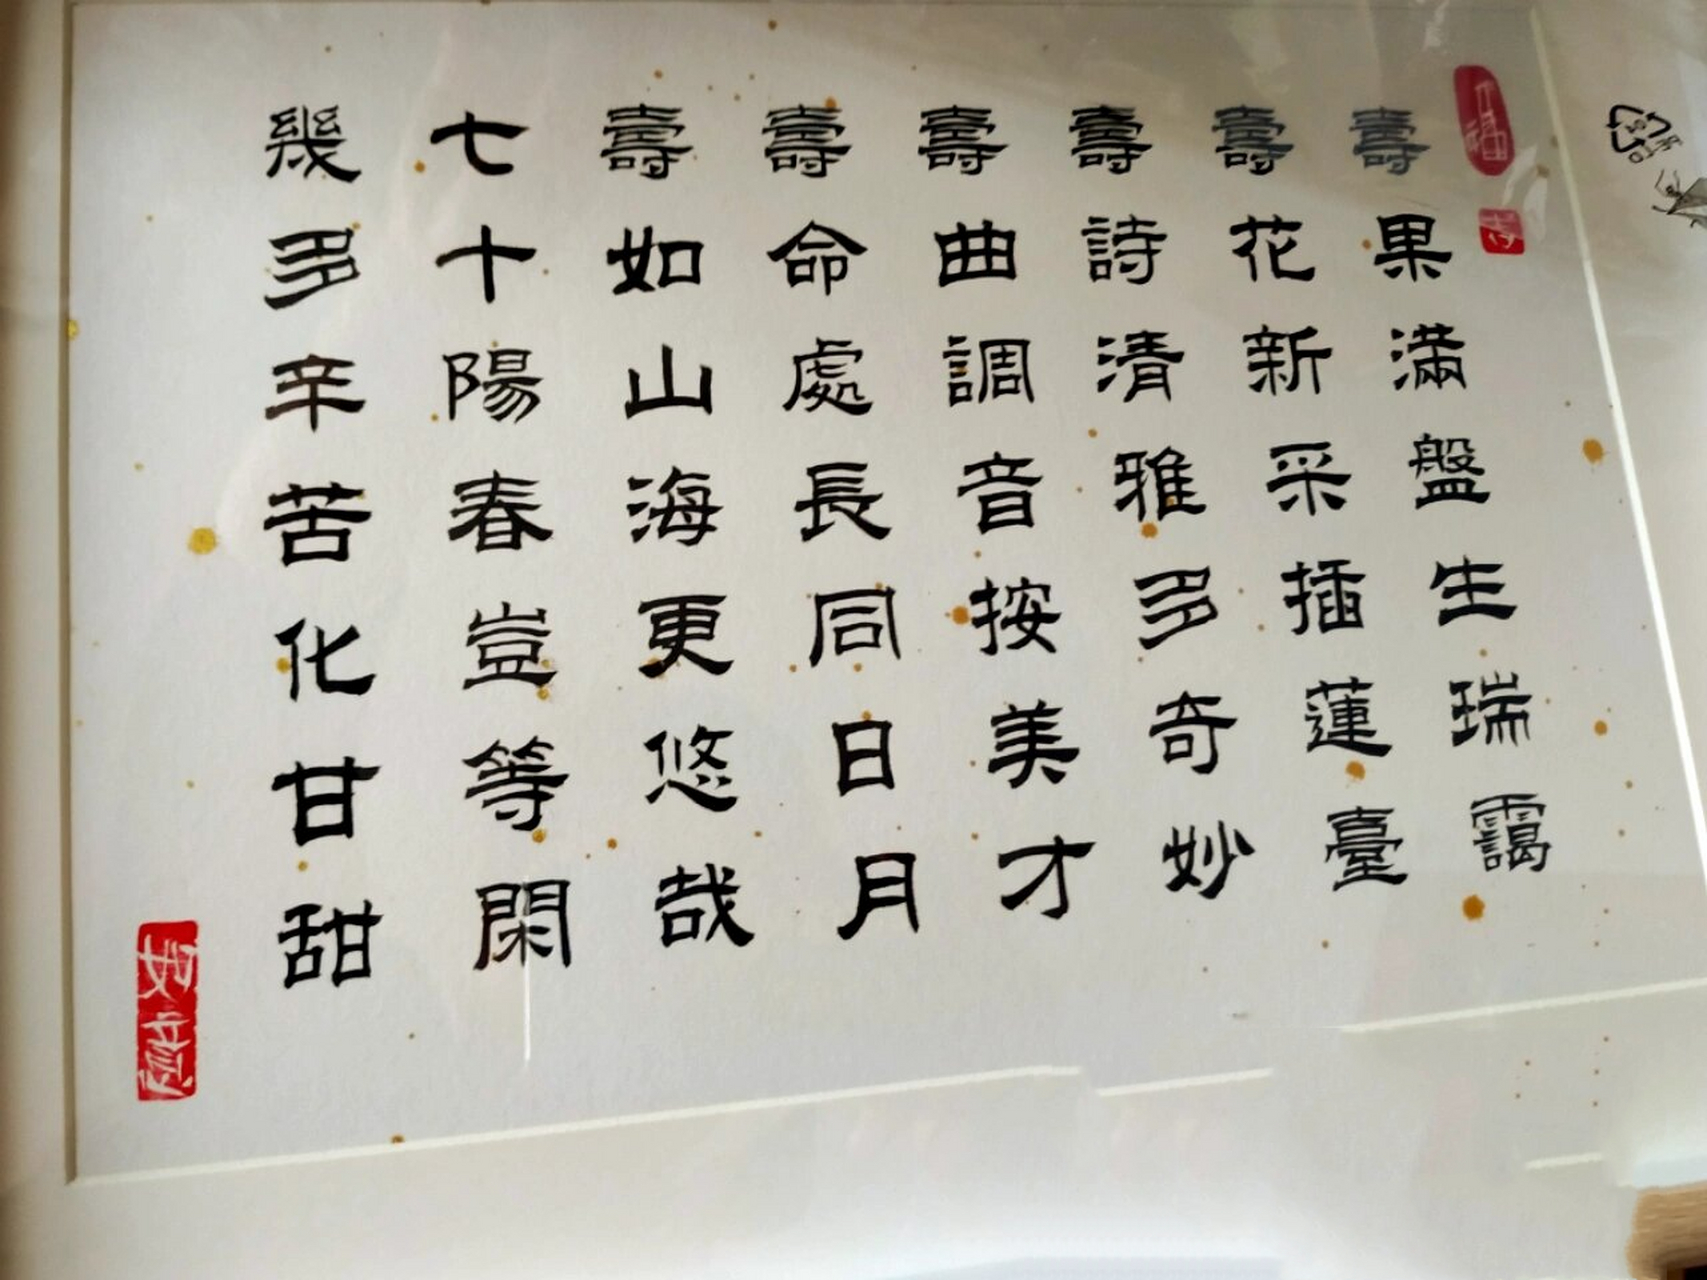 壽果滿盤生瑞靄
壽花新采插蓮臺
壽詩清雅多奇妙
壽曲調音按美才
壽命處長同日月
壽如山海更悠哉
七十陽春豈等閑
幾多辛苦化甘甜